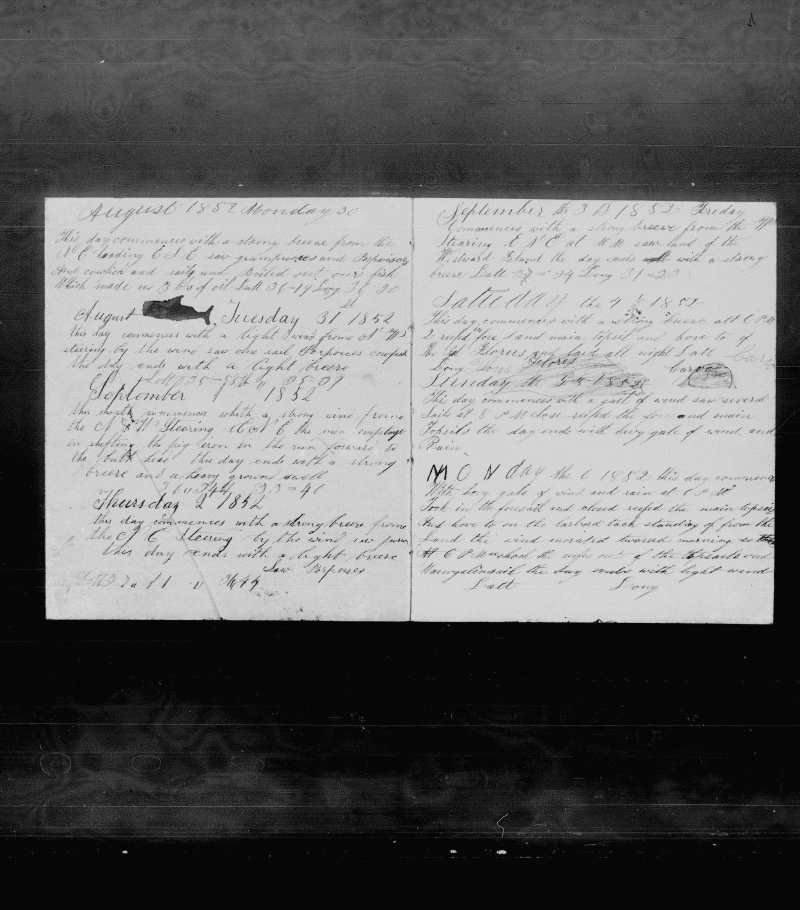 August 1852 Monday 30
This day commences with a strong breeze from the
N E heading E S E saw grampuses and Porpoises
And cowfish and sails and Boiled out our fish
Which made us 3 bs of oil Latt 36-19 Long 30-20
August Tuesday 31 1852
this day commences with a light wind from N
steering by the wind saw one sail Porpoices
the day ends with a light breeze
Latt 35 25-09
September 1 1852
this month commences with a strong wind from
the N W Steering E N E the men employe
in shifting the pig iron in the run forward to
the bulk head this day ends with a strong
breeze and a heavy ground swell
33-40
Thursday 2 1852
this day commences with a strong breeze from
the N E Steering by the wind saw
this day ends with a light breeze
Saw Porpoises
Latt
September the 3 D 1852 Friday
Commences with a strong breeze from the
Stearing E N E at M saw land of the
Westward Island the day ends with a strong
breeze Latt 37-24 Long 31-23
Saturday the 4 1852
This day commences with a strong breeze att 6 P M
2 reefd fore and main topsil and hove to of
the Floruss and laid all night Latt
Long Flores Curvo
Sunday the 5th 1852
This day commences with a gale of wind saw several
Sails at 6 P M close reefed the fore and main
Topsils the day ends with hevy gale of wind and
Rain
MONday the 6 1852 this day commence
With hevy gale of wind and rain at 6 P M
Took in the foursail and closed reefed the main topsail
And hove to on the larbard tack standing of from the
Land the wind
At 6 P M the reefs out of the topsails and
the day ends with light wind
Latt Long